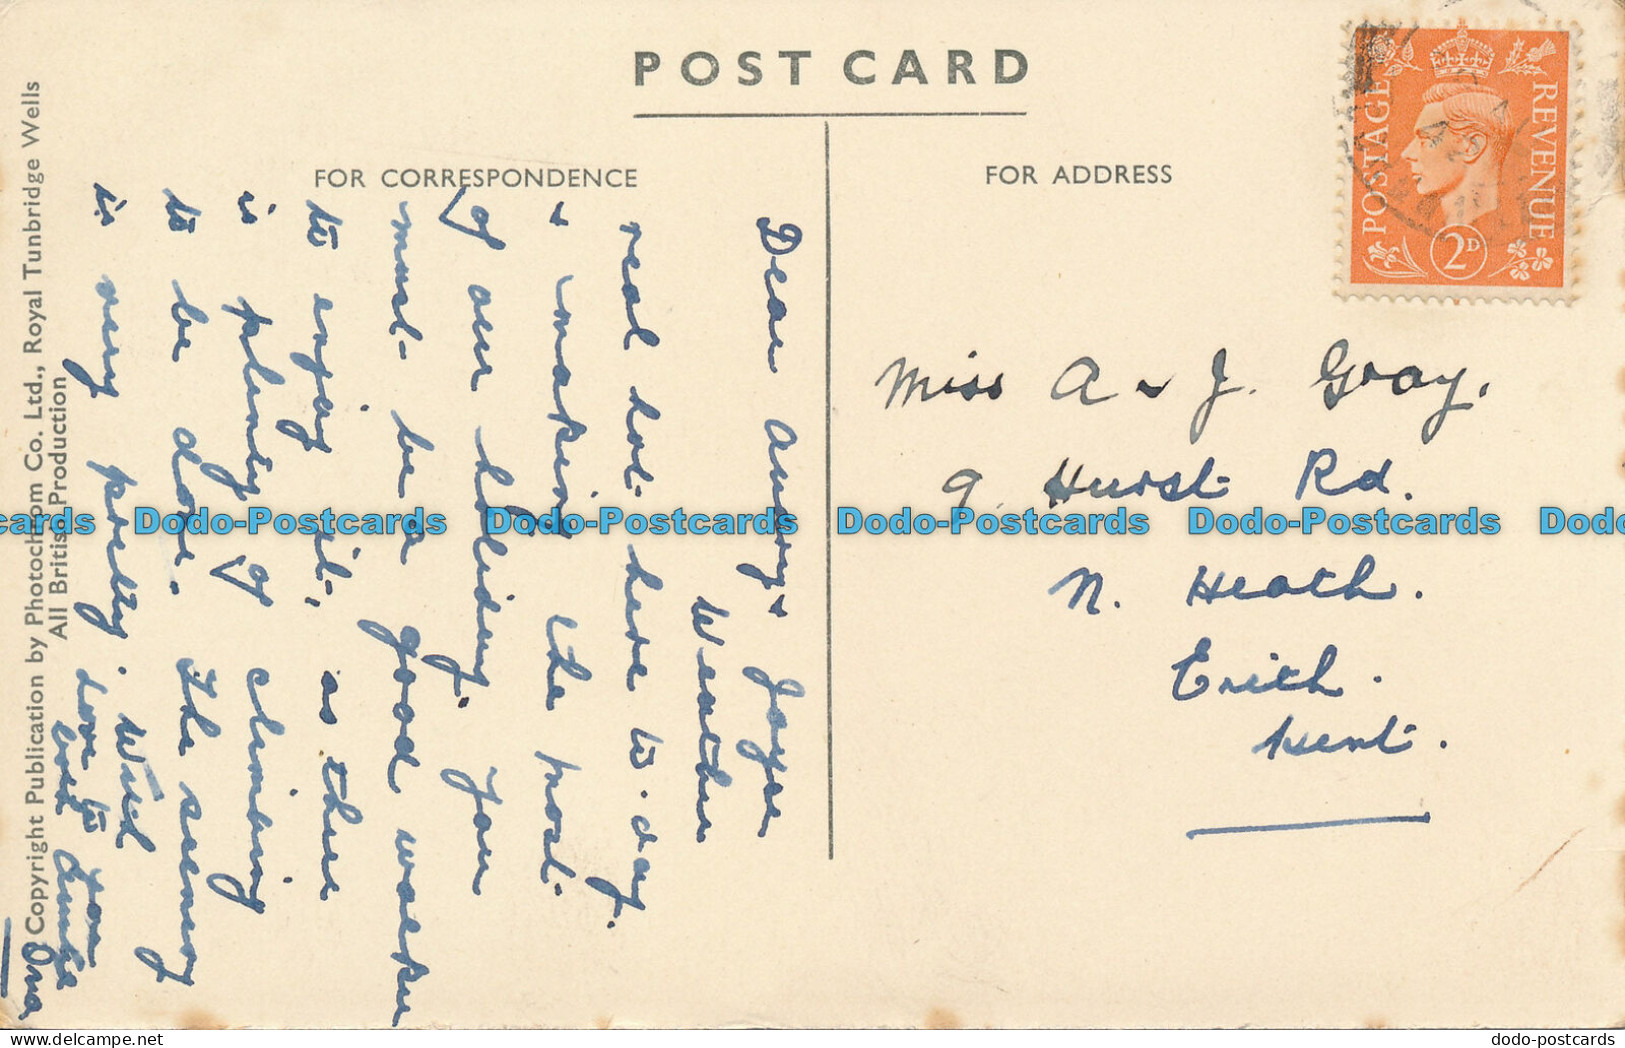 POST CARD
FOR CORRESPONDENCE
FOR ADDRESS
POSTAGE
REVENUE
2D
Dear Audry & Joyce
Weather
real hot here to-day.
& making the most
of our holiday. You
must be a good worker
to enjoy it, as there
is plenty of climbing
to be done. The scenery
is very pretty. Will
love to you
both Auntie
Ona
Miss A & J. Gray.
9 Hurst Rd.
N. Heath.
Erith.
Kent.
Copyright Publication by Photochrom Co. Ltd., Royal Tunbridge Wells
All British Production
cards Dodo-Postcards Dodo-Postcards Dodo-Postcards Dodo-Postcards Dodo
dodo-postcards